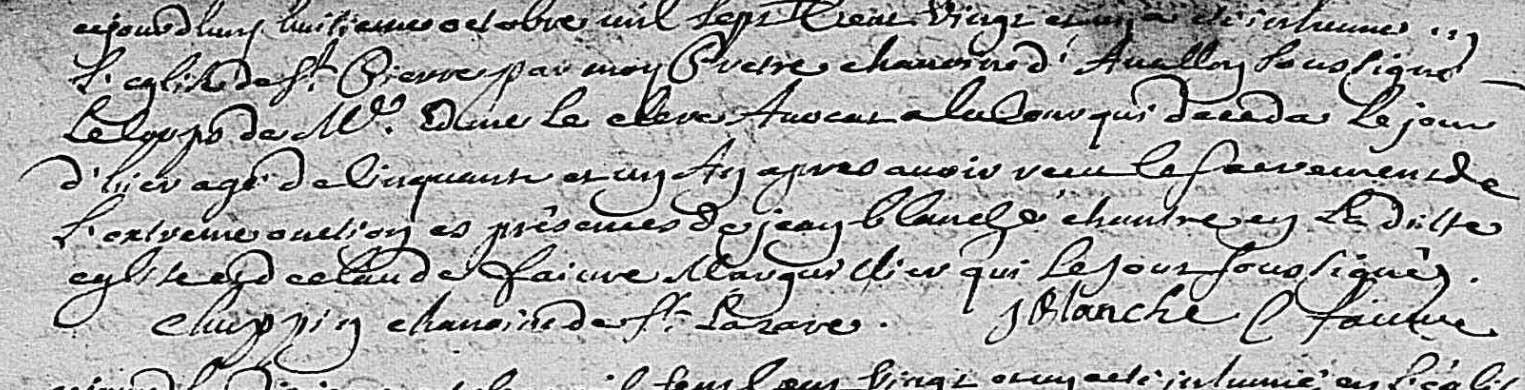 cejourdhuy huitieme octobre mil sept Cent Vingt et un a eté inhumé en
L'eglise de St. Pierre par moy Pretre chanoine d'Avallon soussigné
Le corps de Mr. Edme Le clerc Avocat a la Cour qui deceda Le jour
d'hier agé de Cinquante et un An apres avoir receu le sacrement de
L'extreme onction es présences de jean blanche chantre en La ditte
eglise et de claude faivre Marguillier qui se sont soussignés.
Chappin chanoine de St. Lazare.
JBlanche C faivre